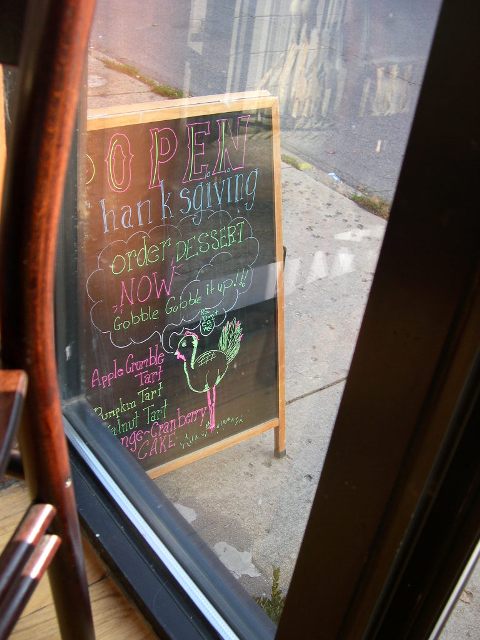 OPEN
hanksgiving
order DESSERT
NOW
Gobble Gobble it up!!!
Apple Crumble
Tart
Pumpkin Tart
alnut Tart
nge-Cranberry
CAKE